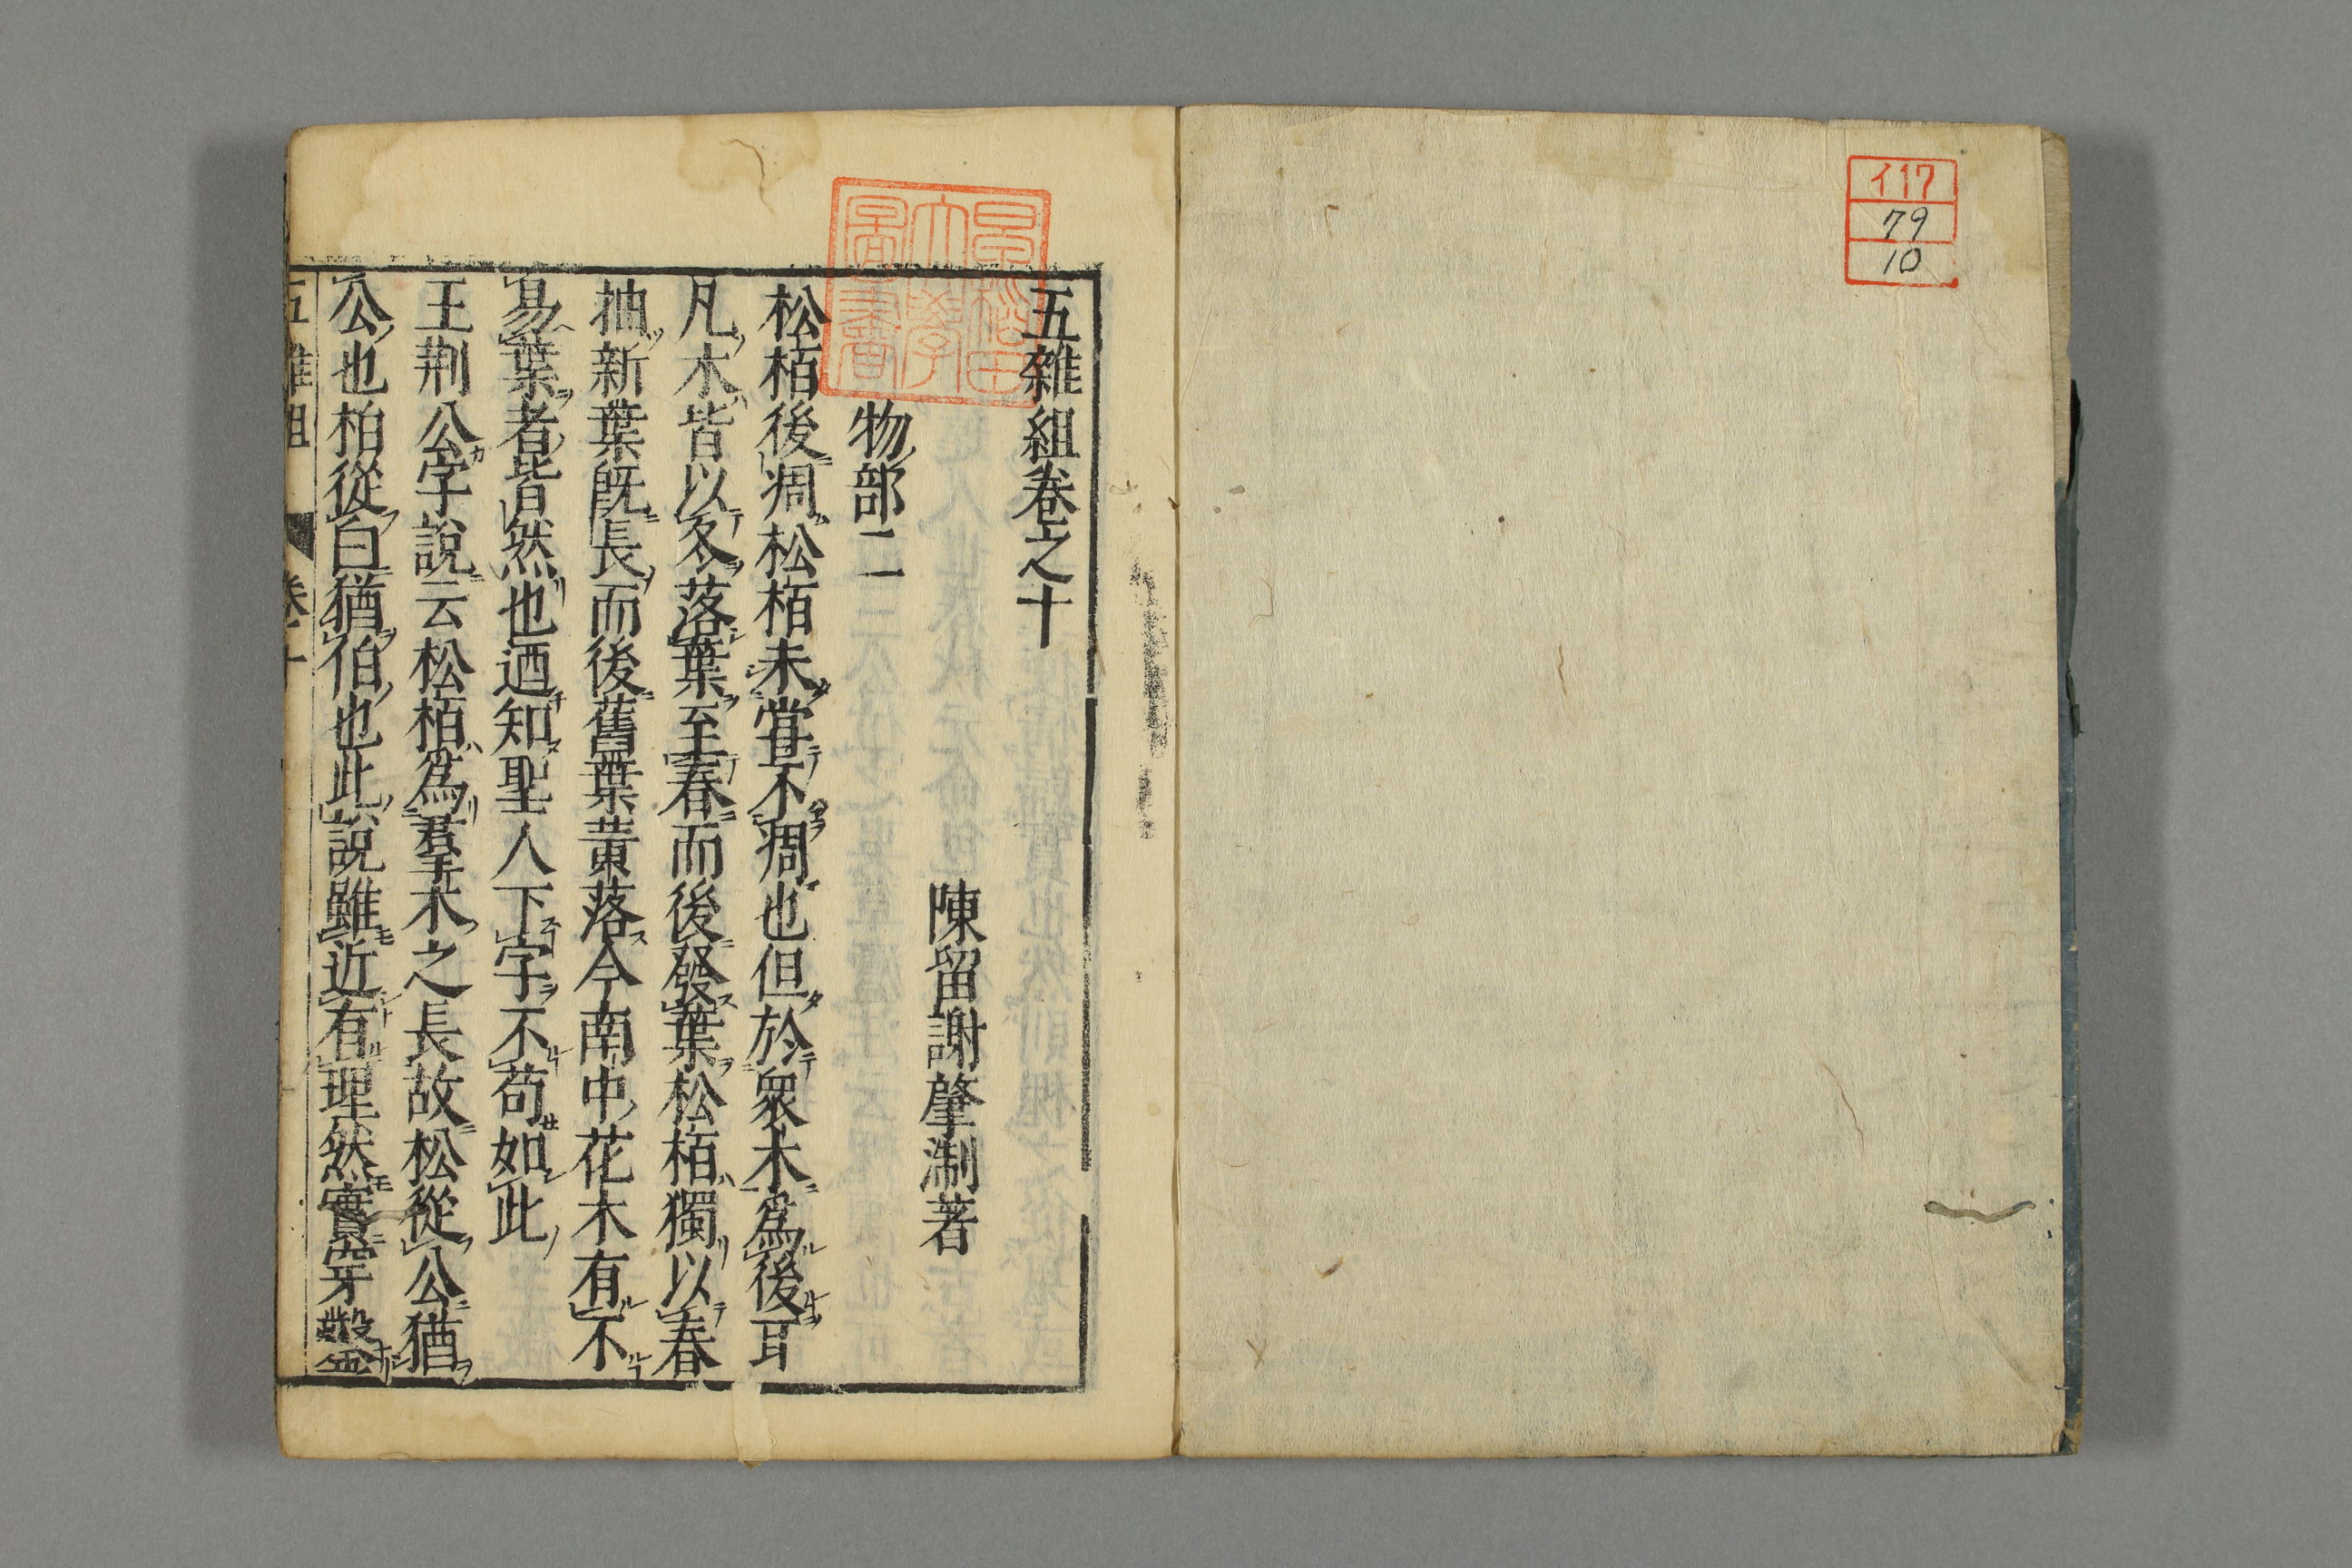 イ17
79
10
五雜組卷之十
陳留謝肇淛著
物部二
松栢後凋松栢未嘗不凋也但於衆木爲後耳
凡木皆以冬落葉至春而後發葉松栢獨以春
抽新葉既長而後舊葉黃落今南中花木有不
易葉者皆然也迺知聖人下字不苟如此
王荆公字說云松栢爲羣木之長故松從公猶
公也柏從白猶伯也此說雖近有理然實穿鑿
五雜組 卷十
早稻田大學圖書